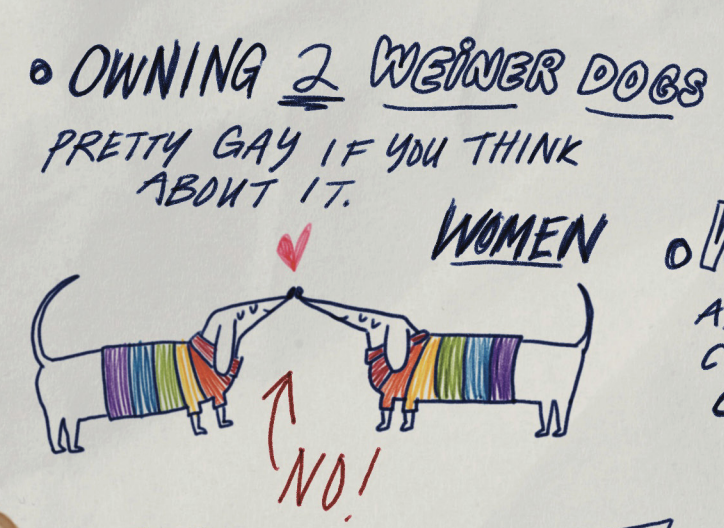 • OWNING 2 WEINER DOGS
PRETTY GAY IF YOU THINK
ABOUT IT.
WOMEN
NO!